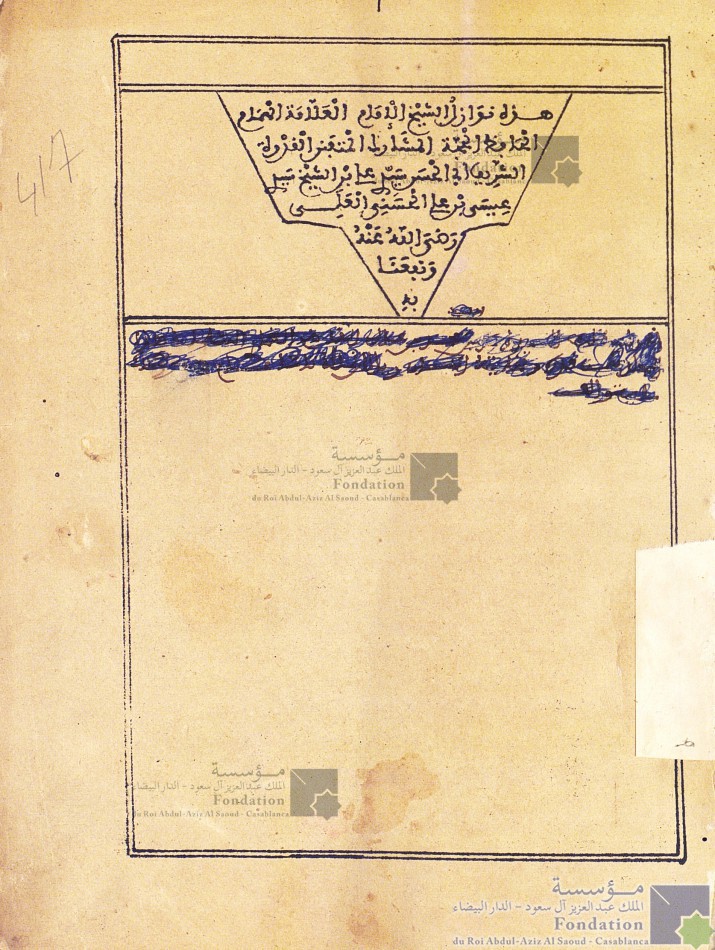 هذه نوازل الشيخ الإمام العلامة الهمام
الحافظ الحجة المشارك المتفنن القدوة
الشريف أبي الحسن سيدي علي بن الشيخ سيدي
عيسى بن علي الحسني العلمي
رضي الله عنه
ونفعنا
به
417
مؤسسة
الملك عبد العزيز آل سعود - الدار البيضاء
Fondation
du Roi Abdul-Aziz Al Saoud - Casablanca
مؤسسة
الملك عبد العزيز آل سعود - الدار البيضاء
Fondation
du Roi Abdul-Aziz Al Saoud - Casablanca
مؤسسة
الملك عبد العزيز آل سعود - الدار البيضاء
Fondation
du Roi Abdul-Aziz Al Saoud - Casablanca